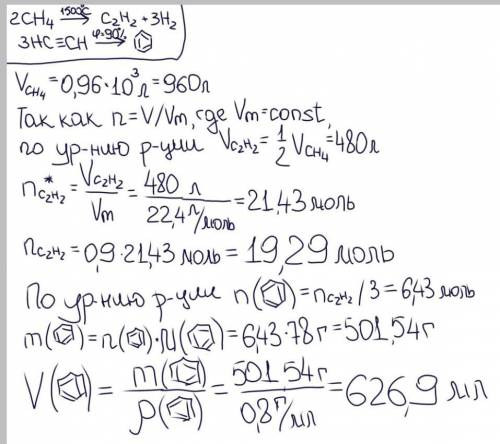 2CH₄ 1500°C→ C₂H₂ + 3H₂
3HC≡CH φ=90%→ ⌬
V_CH₄ = 0,96·10³ л = 960 л
Так как n = V/Vm, где Vm = const,
по ур-нию р-ции V_C₂H₂ = 1/2 V_CH₄ = 480 л
n*_C₂H₂ = V_C₂H₂/Vm = 480 л/22,4 л/моль = 21,43 моль
n_C₂H₂ = 0,9·21,43 моль = 19,29 моль
По ур-нию р-ции n(⌬) = n_C₂H₂/3 = 6,43 моль
m(⌬) = n(⌬)·M(⌬) = 6,43·78 г = 501,54 г
V(⌬) = m(⌬)/ρ(⌬) = 501,54 г/0,8 г/мл = 626,9 мл